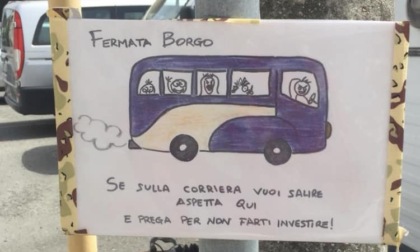 FERMATA BORGO
SE SULLA CORRIERA VUOI SALIRE
ASPETTA QUI
E PREGA PER NON FARTI INVESTIRE!